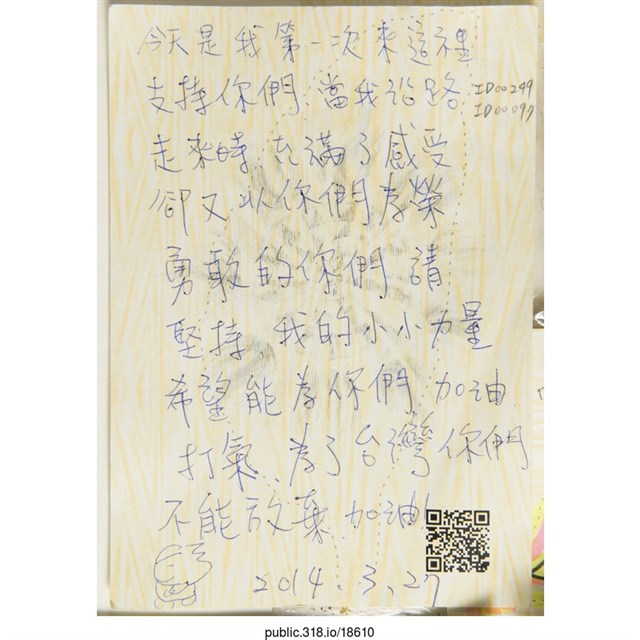 今天是我第一次來這裡
支持你們,當我沿路
ID00249
ID00097
走來時,充滿了感受
卻又以你們為榮
勇敢的你們 請
堅持,我的小小力量
希望能為你們 加油
打氣,為了台灣你們
不能放棄 加油!
2014.3.27
public.318.io/18610